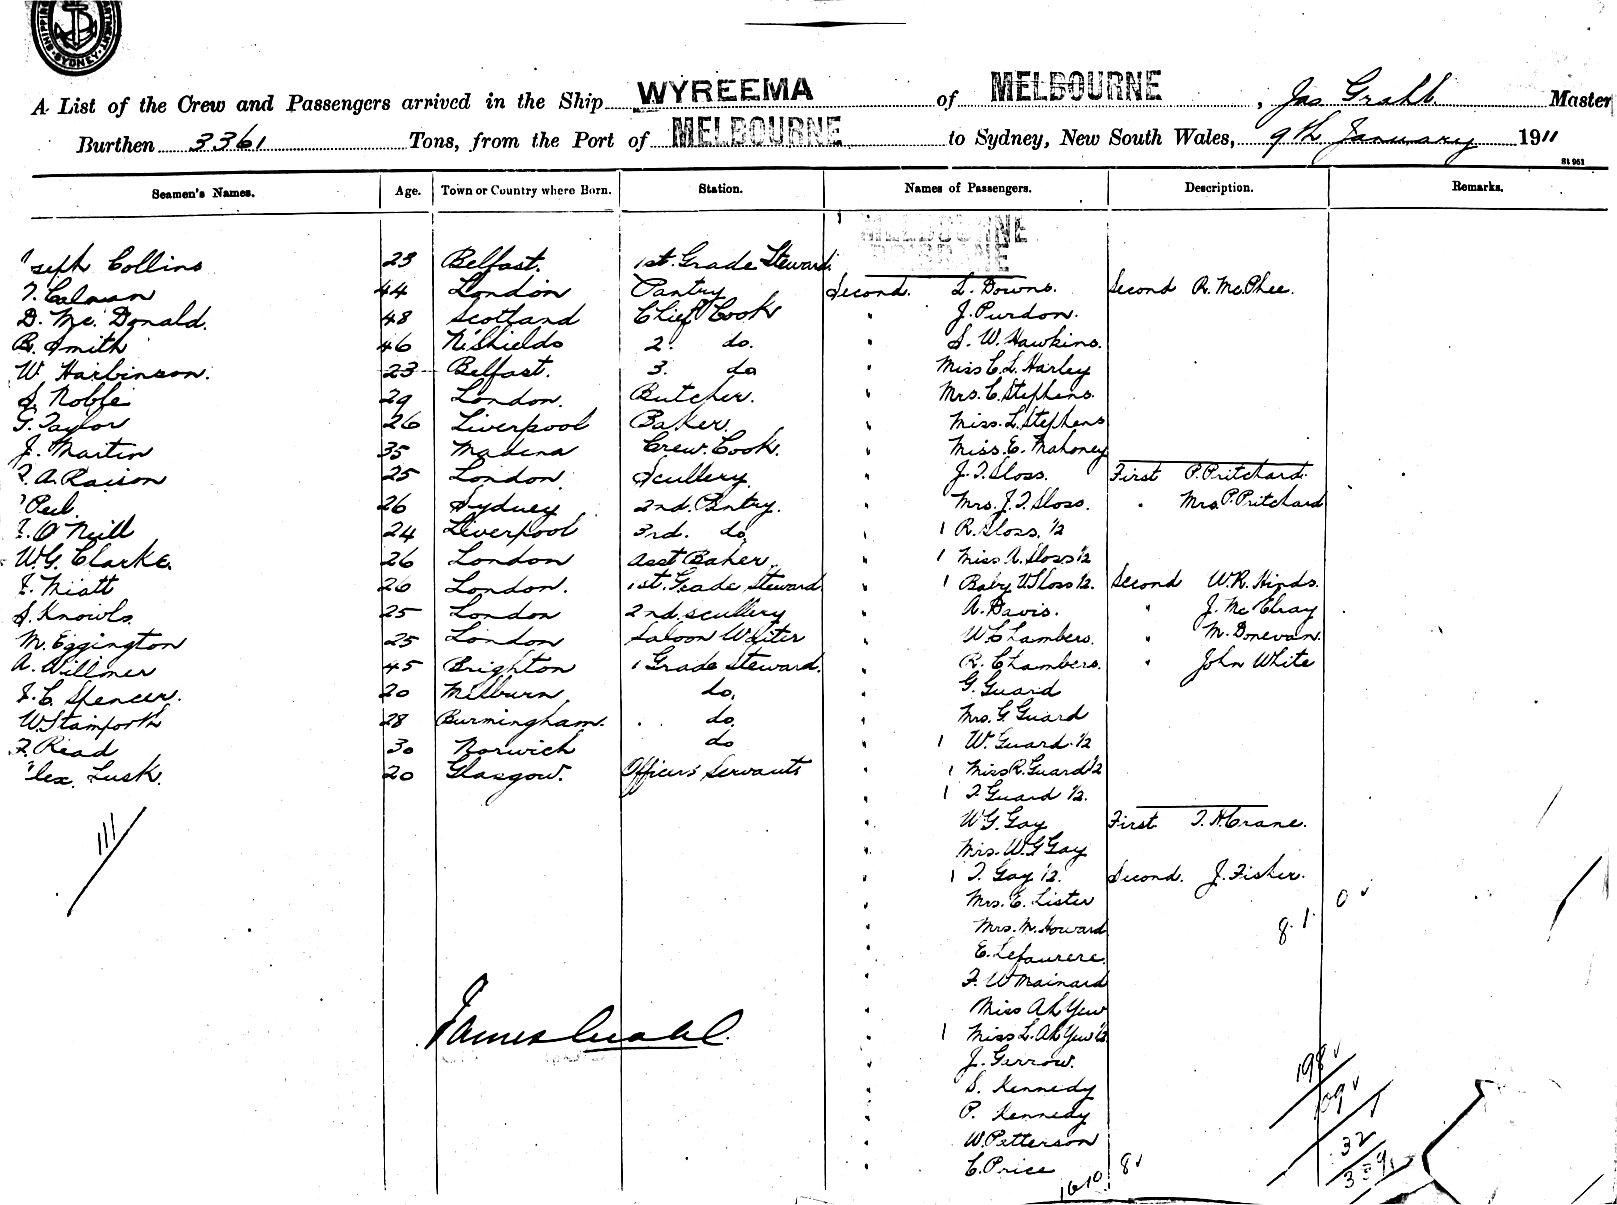 SYDNEY
A List of the Crew and Passengers arrived in the Ship WYREEMA of MELBOURNE, Jas Grahl Master
Burthen 3361 Tons, from the Port of MELBOURNE to Sydney, New South Wales, 9th January 1911
Seamen's Names. Age. Town or Country where Born. Station. Names of Passengers. Description. Remarks.
MELBOURNE
seph Collins 23 Belfast. 1st. Grade Steward.
T. Calman 44 London Pantry Second. L. Downs. Second R. McPhee.
D. Mc. Donald. 48 Scotland Chief Cook " J. Purdon.
B. Smith 46 N. Shields 2. do. " S. W. Hawkins.
W. Harbinson. 23 Belfast. 3. do " Miss C. L. Harley
S. Noble 29 London. Butcher. " Mrs. C. Stephens.
G. Taylor 26 Liverpool Baker. " Miss. L. Stephens
J. Martin 35 Madeira Crew. Cook. " Miss. E. Mahoney
A. Raison 25 London. Scullery " J. T. Sloss. First P. Pritchard.
Peel. 26 Sydney 2nd. Pantry. " Mrs. J. T. Sloss. " Mrs P. Pritchard
O'Neill 24 Liverpool 3rd. do " 1 R. Sloss. 1/2
W. G. Clarke. 26 London Asst Baker. " 1 Miss A. Sloss 1/2
Miatt 26 London. 1st. Grade Steward " 1 Baby W Sloss 1/2. Second W. R. Hinds.
S. Knowls. 25 London 2nd. scullery " A. Davis. " J. McElray
M. Eggington 25 London Saloon Waiter " W. Chambers. " M. Donevan.
A. Willmer 45 Brighton 1 Grade Steward. " R. Chambers. " John White
C. Spencer. 20 Milburn do. " G. Guard
W Stamforth 28 Burmingham. do. " Mrs. G. Guard
F. Read 30 Norwich do " 1 W. Guard. 1/2
lex. Lusk. 20 Glasgow. Officers' Servants " 1 Miss R. Guard 1/2
" 1 T Guard 1/2.
111 " W. G. Gay First T. H. Crane.
" Mrs. W. G Gay
" 1 T. Gay 1/2. Second. J. Fisher.
" Mrs. E. Lister 0
" Mrs. M. Howard 8. 1.
" E. Lefaurere.
" F. W Mainard
" Miss Ah Yew
James Grahl " 1 Miss L. Ah Yew 1/2
" J. Gerrow.
" S. Kennedy 198
" P. Kennedy 109
" W. Petterson 32
" C. Price
16 10 8 339